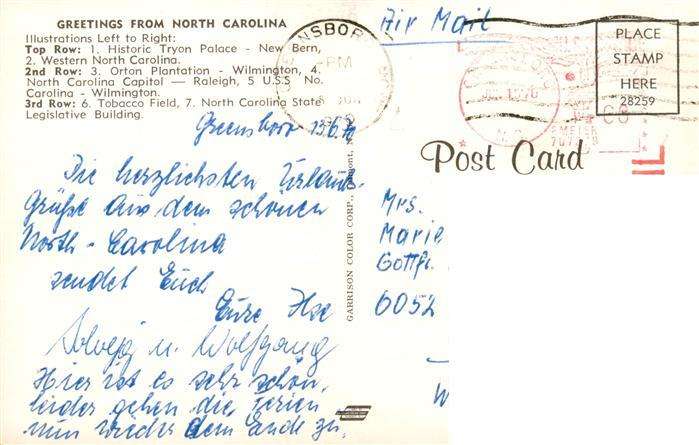 GREETINGS FROM NORTH CAROLINA
Illustrations Left to Right:
Top Row: 1. Historic Tryon Palace - New Bern,
2. Western North Carolina.
2nd Row: 3. Orton Plantation - Wilmington, 4.
North Carolina Capitol — Raleigh, 5 U.S.S. No.
Carolina - Wilmington.
3rd Row: 6. Tobacco Field, 7. North Carolina State
Legislative Building.
Greensboro
Die herzlichsten Urlaubs-
Grüße aus dem schönen
North-Carolina
sendet Euch
Eure Ilse
u. Wolfgang
Hier ist es sehr schön,
leider gehen die Ferien
nun wieder dem Ende zu.
GARRISON COLOR CORP.,
NSBOR
PM
Air Mail
PLACE
STAMP
HERE
28259
Post Card
Mrs.
Marie
Gottfr.
6052